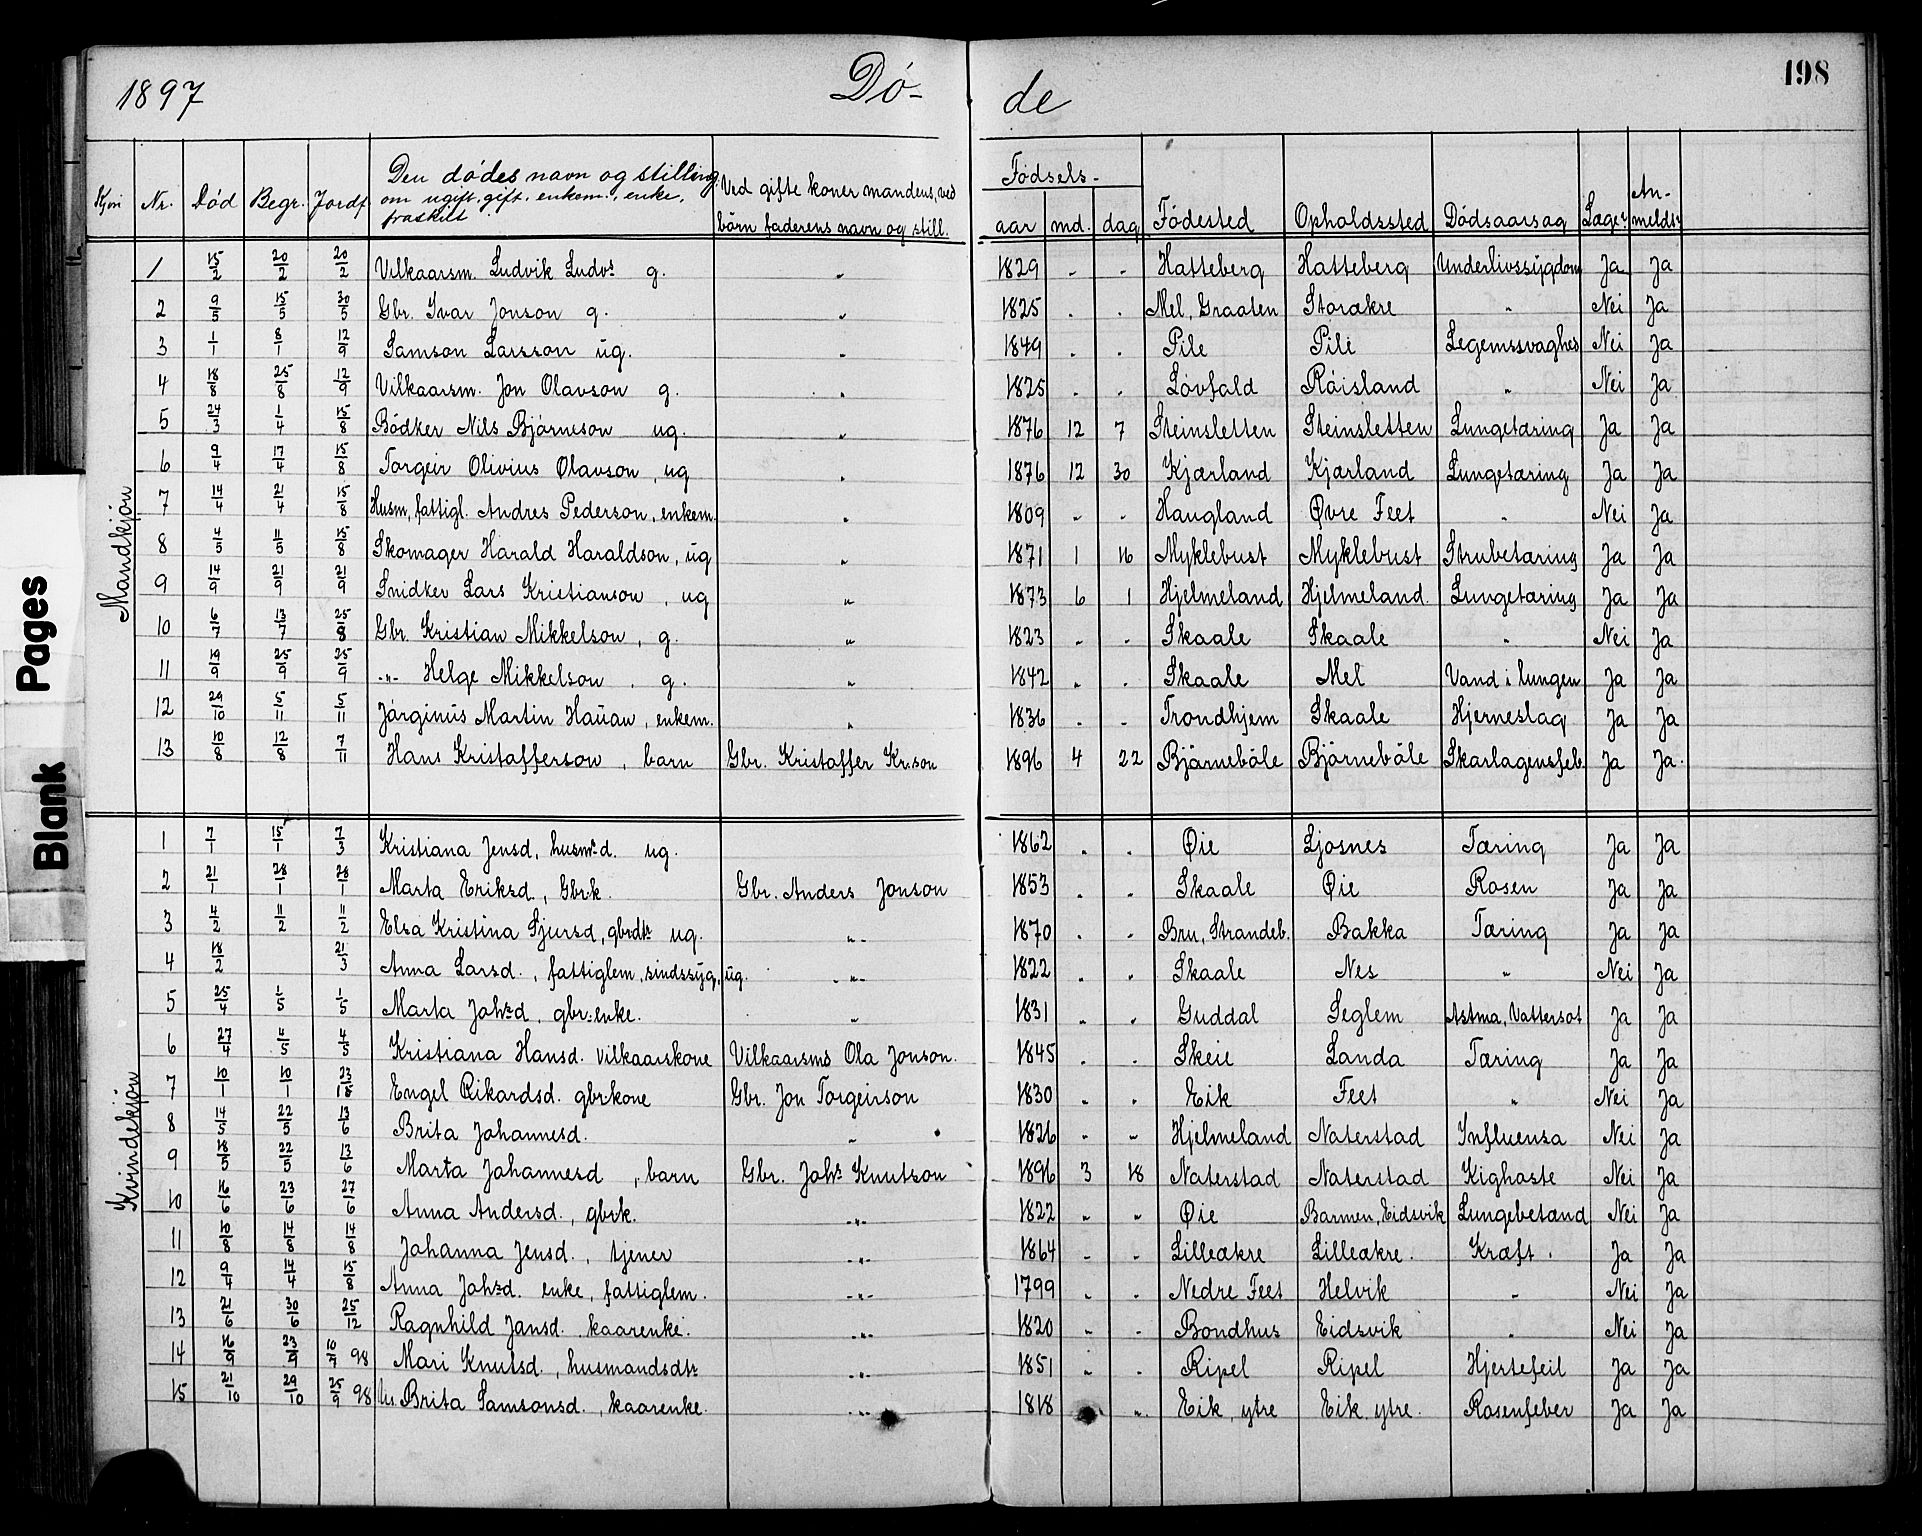 1897 Dö- de 198
Kjön Nr. Död Begr. Jordf. Den dödes navn og stilling, om ugift, gift, enkem., enke, fraskilt Ved gifte koner mandens, ved börn faderens navn og still. Födsels- aar md. dag Födested Opholdssted Dödsaarsag Læge? An-melds?
Mandkjön
1 15/2 20/2 20/2 Vilkaarsm. Ludvik Ludvs g. " 1829 " " Hatteberg Hatteberg Underlivssygdom Ja Ja
2 9/5 15/5 30/5 Gbr. Ivar Jonson g. " 1825 " " Mel, Graaten Storakre " Nei Ja
3 1/1 8/1 12/9 Samson Larsson ug. " 1849 " " Pile Pile Legemssvaghed Nei Ja
4 18/8 25/8 12/9 Vilkaarsm. Jon Olavson g. " 1825 " " Lövfald Röisland " Nei Ja
5 24/3 1/4 15/8 Bödker Nils Björneson ug. " 1876 12 7 Steinsletten Steinsletten Lungetæring Ja Ja
6 9/4 17/4 15/8 Torgeir Olivius Olavson, ug " 1876 12 30 Kjærland Kjærland Lungetæring Ja Ja
7 14/4 21/4 15/8 Husm, fattigl. Andres Pederson, enkem. " 1809 " " Haugland Øvre Feet " Nei Ja
8 4/5 11/5 15/8 Skomager Harald Haraldson, ug " 1871 1 16 Myklebust Myklebust Strubetæring Ja Ja
9 14/9 21/9 21/9 Snidker Lars Kristianson, ug " 1873 6 1 Hjelmeland Hjelmeland Lungetæring Ja Ja
10 6/7 13/7 25/8 Gbr. Kristian Mikkelson, g. " 1823 " " Skaale Skaale " Nei Ja
11 19/9 25/9 25/9 -"- Helge Mikkelson, g. " 1842 " " Skaale Mel Vand i lungen Ja Ja
12 29/10 5/11 5/11 Jörginus Martin Hauan, enkem. " 1836 " " Trondhjem Skaale Hjerneslag Ja Ja
13 10/8 12/8 7/11 Hans Kristofferson, barn Gbr. Kristoffer Kr.son 1896 4 22 Björneböle Björneböle Skarlagensfeb. Ja Ja.
Kvindekjön
1 7/1 15/1 7/3 Kristiana Jensd, husm.d. ug. 1862 " " Øie Ljosnes Tæring Ja Ja
2 21/1 28/1 28/1 Marta Eriksd., Gbr.k. Gbr. Anders Jonson 1853 " " Skaale Øie Rosen Ja Ja
3 4/2 11/2 11/2 Elsa Kristina Sjursd, gbrdtr ug. " 1870 " " Bru, Strandeb. Bakka Tæring Ja Ja
4 18/2 21/3 Anna Larsd., fattiglem, sindssyg, ug. " 1822 " " Skaale Nes " Nei Ja
5 25/4 1/5 1/5 Marta Johsd, gbr.enke. " 1831 " " Guddal Seglem Astma, Vattersot Ja Ja
6 27/4 4/5 4/5 Kristiana Hansd. vilkaarskone Vilkaarsms Ola Jonson. 1845 " " Skeie Landa Tæring Ja Ja
7 10/1 10/1 23/ Engel Rikardsd. gbrkone Gbr. Jon Torgeirson 1830 " " Eik Feet " Nei Ja
8 14/5 22/5 13/6 Brita Johannesd. " 1826 " " Hjelmeland Naterstad Influensa Nei Ja
9 18/5 22/5 13/6 Marta Johannesd, barn Gbr. Johs Knutson 1896 3 18 Naterstad Naterstad Kighoste Nei Ja
10 16/6 23/6 27/6 Anna Andersd., gbrk. " 1822 " " Øie Barmen, Eidsvik Lungebetænd Nei Ja
11 10/8 14/8 14/8 Johanna Jensd., tjener " 1864 " " Lilleakre Lilleakre. Kræft. Ja Ja
12 9/4 14/4 15/8 Anna Johsd. enke, fattiglem. " 1799 " " Nedre Feet Helvik " Nei Ja
13 21/6 30/6 25/12 Ragnhild Jansd., kaarenke. " 1820 " " Bondhus Eidsvik " Nei Ja
14 16/9 23/9 10/7 98 Mari Knutsd., husmandsdtr " 1851 " " Ripel Ripel Hjertefeil Ja Ja
15 21/10 29/10 25/9 98 Brita Samsonsd., kaarenke. " 1818 " Eik, ytre Eik, ytre. Rosenfeber Ja Ja
Blank Pages